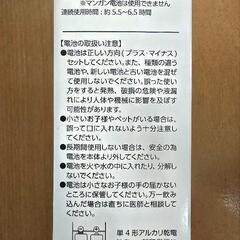 ※マンガン電池は使用できません
連続使用時間：約 5.5～6.5 時間
【電池の取扱い注意】
●電池は正しい方向（プラス・マイナス）
セットしてください。また、種類の違う
電池や、新しい電池と古い電池を混ぜて
使用しないでください。誤った使い方を
すると発熱、破裂、破損の危険や液漏
れにより人体や機械に影響を及ぼす可
能性があります。
●小さいお子様やペットがいる場合は、
誤って口に入れないよう十分注意してく
ださい。
●長期間使用しない場合は、安全の為
電池を本体から取り出してください。
●電池を火や水の中に入れたり、分解し
ないでください。
●電池は小さなお子様の手の届かない
ところに保管してください。万一飲み込
んだ場合は直ちに医師と相談してくださ
い。
単４形アルカリ乾電